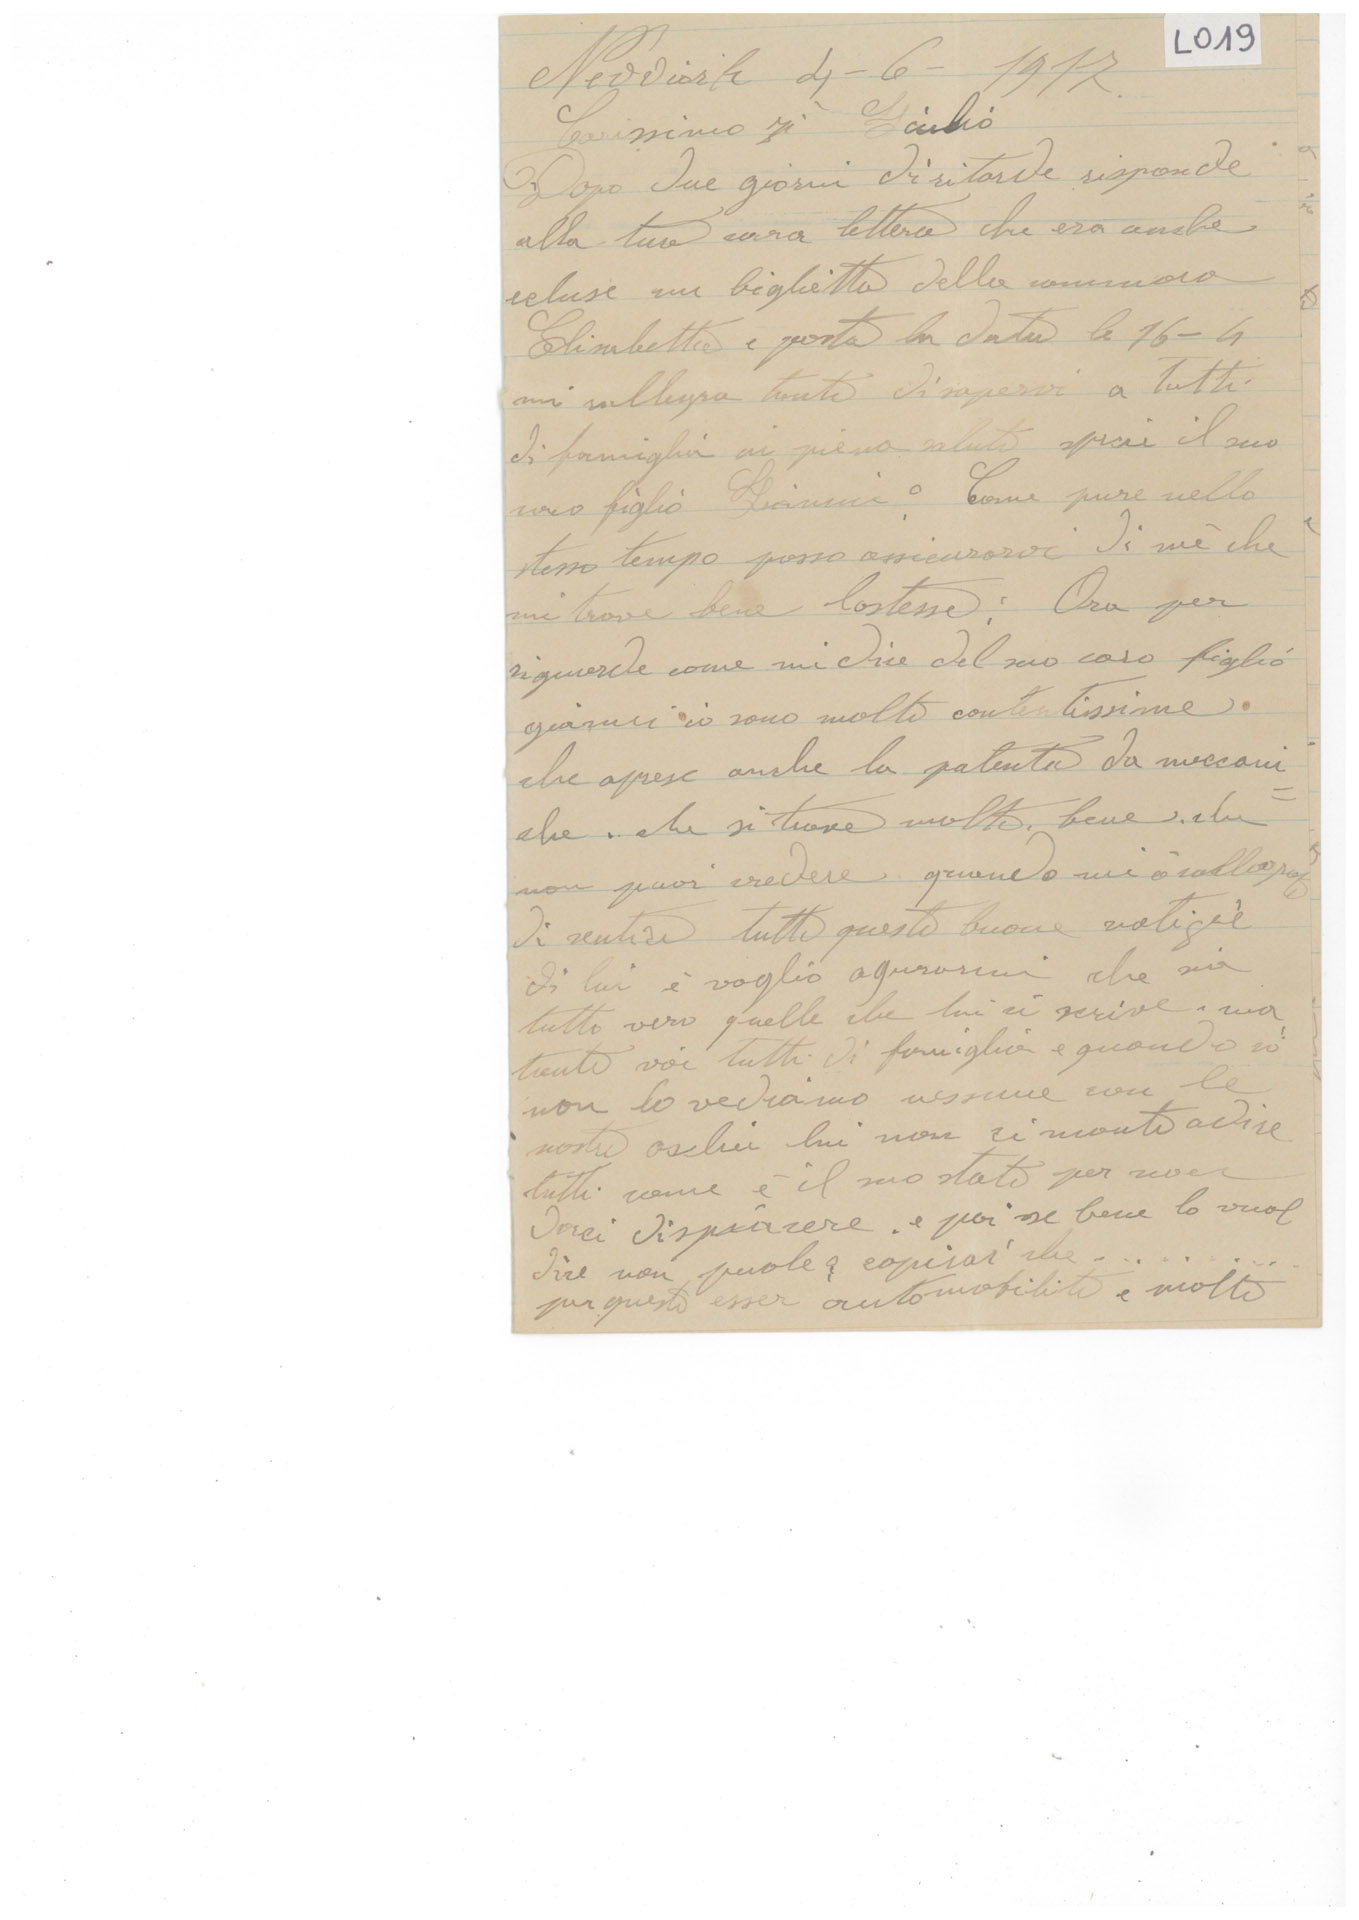 L019
Neddiork 4-6-1917.
Carissimo zi Giulio
Dopo due giorni di ritarde risponde
alla tua cara lettera che era anche
ecluse un biglietto della commara
Elisabetta e porta la data le 16-4
mi rallegra tanto di sapervi a tutti
di famiglia in piena salute il suo
caro figlio Gianni. Come pure nello
stesso tempo posso assicurarvi di mè che
mi trove bene lostesse; Ora per
riguarde come mi dice del suo caro figlio
gianni io sono molto contentissime.
che aprese anche la patenta da meccani=
che. che si trove molto bene. che
non puoi credere quando mi è
di sentire tutte queste buone notizie
di lui è voglio agurarmi che sia
tutto vero quelle che lui ci scrive. ma
tanto voi tutti di famiglia e quando io
non lo vediamo nessune con le
nostre occhie lui non ci
tutti come è il suo stato per non
darci dispiacere. e poi se bene lo vuol
dire non puole capirai che........
per queste esser automobiliste e molto